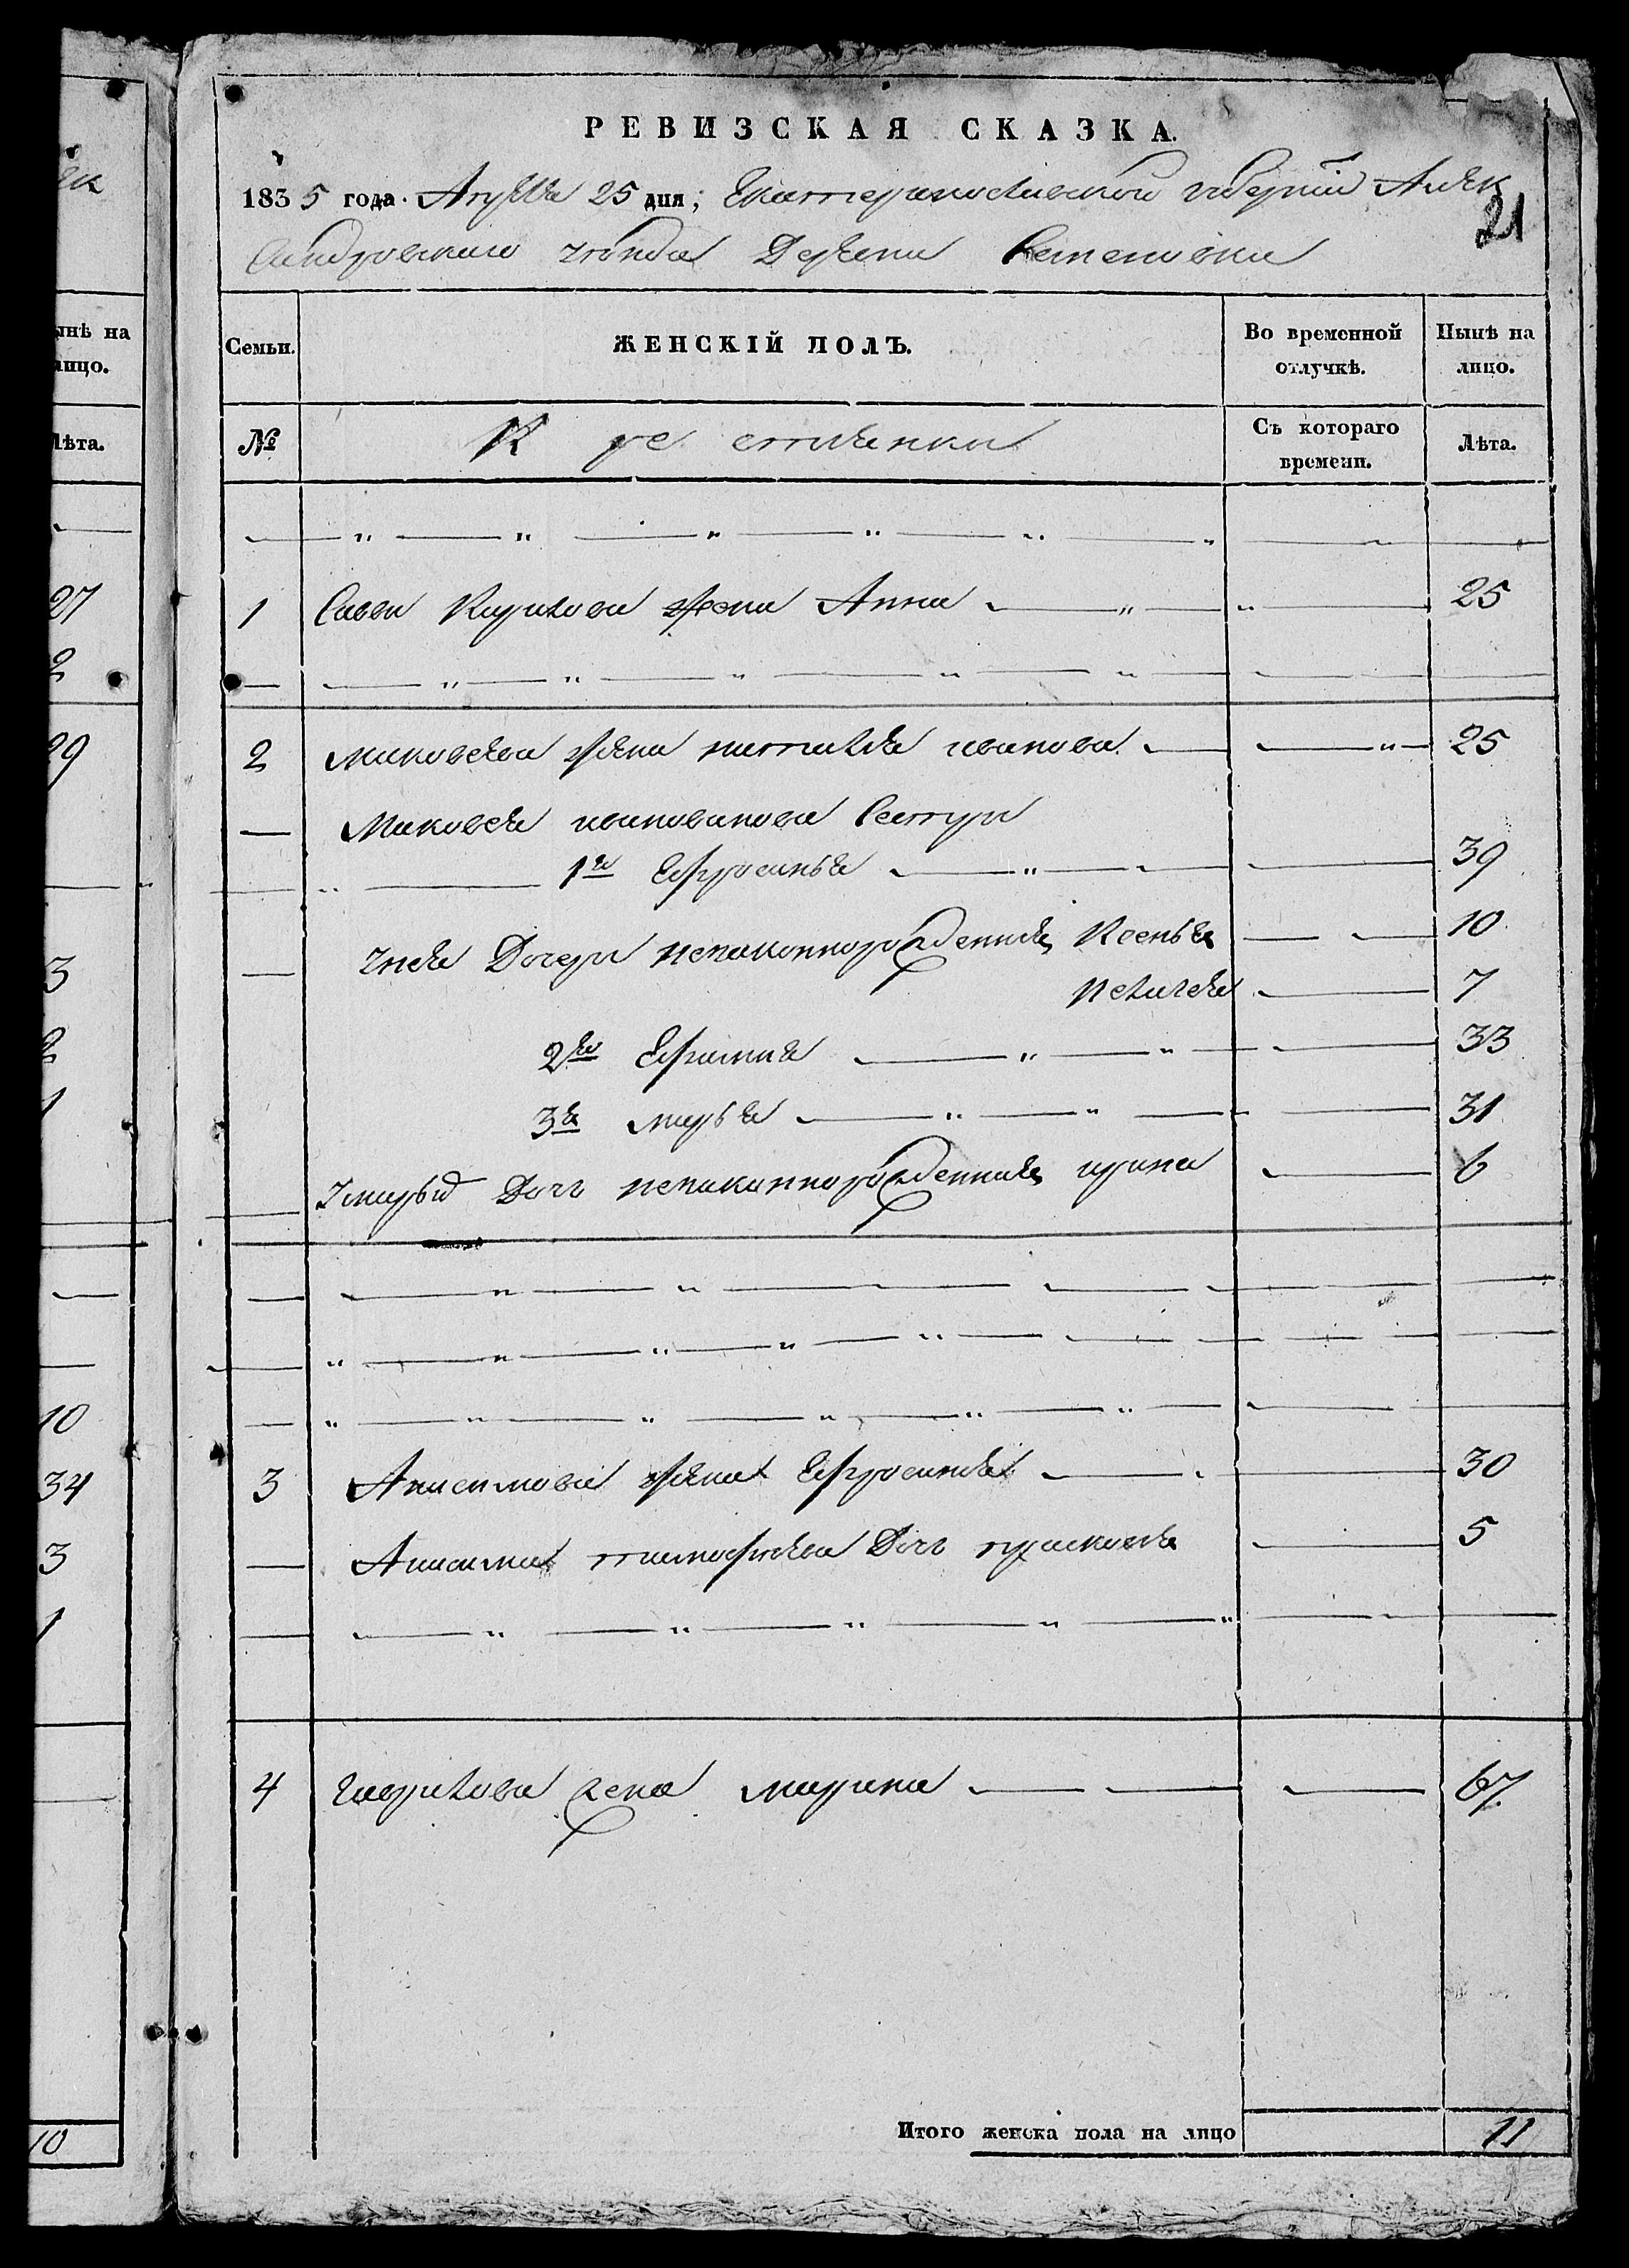 РЕВИЗСКАЯ СКАЗКА.
1835 года. Апреля 25 дня; Екатеринославской губернии Алек
21
сандровскаго уезда Деревни
Семьи. ЖЕНСКІЙ ПОЛЪ. Во временной отлучкѣ. Нынѣ на лицо.
№ Крестьянки Съ котораго времени. Лѣта.
1 Савы Кирилова жена Анна 25
2 Маковеева жена наталья иванова 25
Маковея Сестры
1я Ефросинья 39
унея Дочери незаконнорожденныя Ксенья 10
Пелагея 7
2я Ефимия 33
3я марья 31
умарьи Дочь незаконнорожденная ирина 6
3 Анисимова жена Ефросинья 30
Анисима тимофеева Дочь прасковья 5
4 гаврилова жена марина 67
Итого женска пола на лицо 11
ынѣ на
лицо.
Лѣта.
27
2
29
3
2
1
10
34
3
1
10